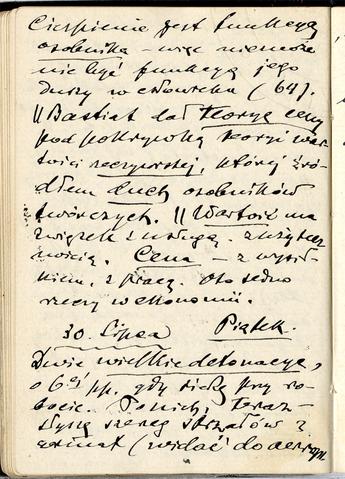 Cierpienie jest funkcyą
osobnika – więc niemoże
nie być funkcyą jego
duszy w człowieku (64).
|| Bastiat dał teoryę ceny
pod pokrywką teoryi war-
tości rzeczywistej, której źró-
dłem duch osobników
twórczych. || Wartość ma
związek z usługą. z użytecz
nością. Cena – z wysił-
kiem, z pracą. Oto sedno
rzeczy w ekonomii.
30. Lipca Piątek.
Dwie wielkie detonacye,
o 6ej pp. gdy siedzę przy ro-
bocie. Po nich, teraz
słyszę szereg strzałów z
armat (widać do aeropl.